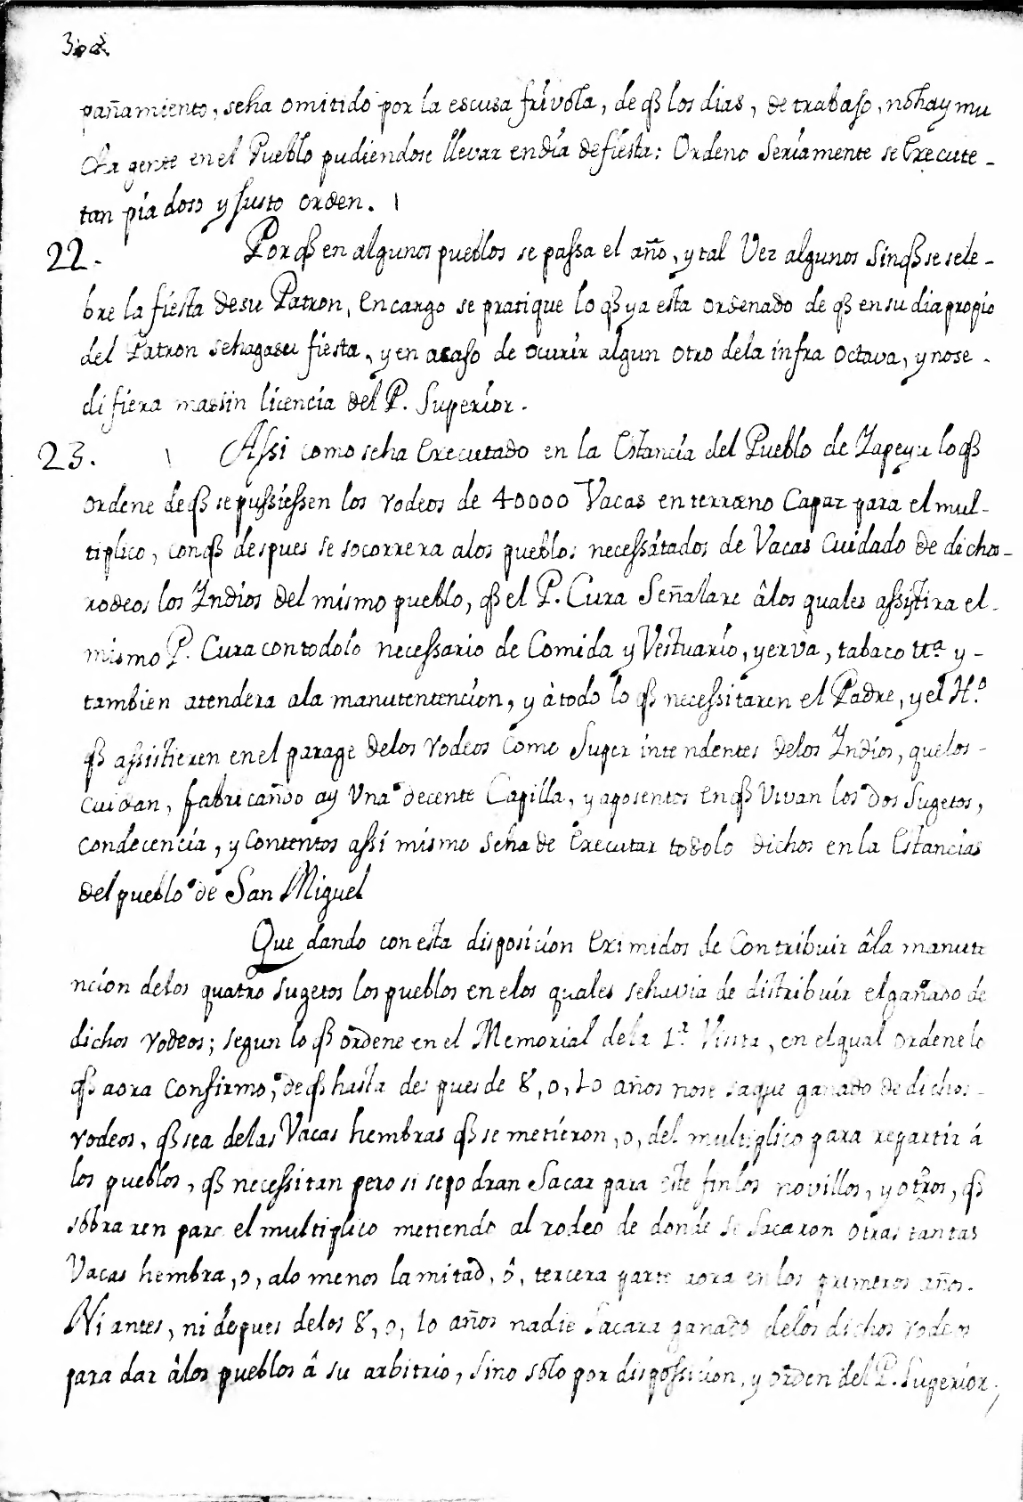 pañamiento, seha omitido por la escusa frívola, de q̃ los dias, de trabaJo, nohay mu
cha gente enel Pueblo pudiendose llevar endía defiésta: Ordeno Seríamente se Execute -
tan pía doso y Justo orden.
22. Porq̃ en algunos pueblos se passa el año, y tal Vez algunos Sinq̃ se sele -
bre la fiésta desu Patron, Encargo se pratique lo q̃ ya esta ordenado de q̃ ensu dia propio
del Patron sehagasu fiesta, y en acaso de ocurir algun otro dela infra octava, y nose -
di fiera massin licencia del P. Superíor.
23. Assi como seha Executado en la Estancía del Pueblo de Yapeyu lo q̃
ordene deq̃ se pussiessen los rodeos de 40000 Vacas en terræno Capaz para el mul-
tiplico, conq̃ despues se socorrera alos pueblos necessitados de Vacas Cuidado de dichos -
rodeos los Indios del mismo pueblo, q̃ el P. Cura Señalare âlos quales assistira el -
mismo P. Cura contodolo necessario de Comida y Vestuarío, yerva, tabaco ttª y -
tambien atendera ala manutentencion, y àtodo lo q̃ necessitaren el Padre, y el Hº
q̃ assistieren enel parage delos rodeos Como Super inte ndentes delos Indíos, quelos -
cuidan, fabricando ay Una decente Capilla, y aposentos enq̃ Vivan los dos Sugetos,
condecencía, y contentos assi mismo Seha de Executar todolo dichos en la Estancias
del pueblo de San Miguel
Que dando con esta disposicion Eximidos de Contribuir âla manute
ncíon delos quatro Sugetos los pueblos en elos quales sehavia de distribuír el ganado de
dichos rodeos; segun lo q̃ ordene en el Memorial dela 1ª Visita, en elqual ordene lo
q̃ aora confirmo, deq̃ hasta des pues de 8, o, 10 años nose saque ganado de dichos -
rodeos, q̃ sea delas Vacas hembras q̃ se metieron, o, del multiplico para repartir á
los pueblos, q̃ necessitan pero si sepo dran Sacar para este fin los novillos, y otros, q̃
sobra ren para el multiplico metiendo al rodeo de donde se sacaron otras tantas
Vacas hembra, o, alo menos la mitad, ó, tercera parte aora en los primeros años.
Ni antes, ni depues delos 8, o, 10 años nadie Sacara ganado delos dichos rodeos
para dar âlos pueblos â su arbitrío, sino sólo por dispossicion, y orden del P. Superíor,